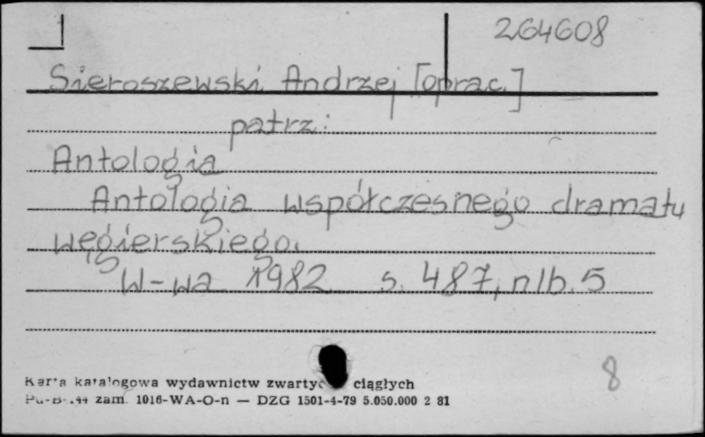 264608
Sieroszewski Andrzej [oprac.]
patrz:
Antologia
Antologia współczesnego dramatu
węgierskiego.
W-wa 1982 s. 487, nlb. 5
8
Karta katalogowa wydawnictw ciągłych
zam. 1016-WA-O-n — DZG 1501-4-79 5.050.000 2 81